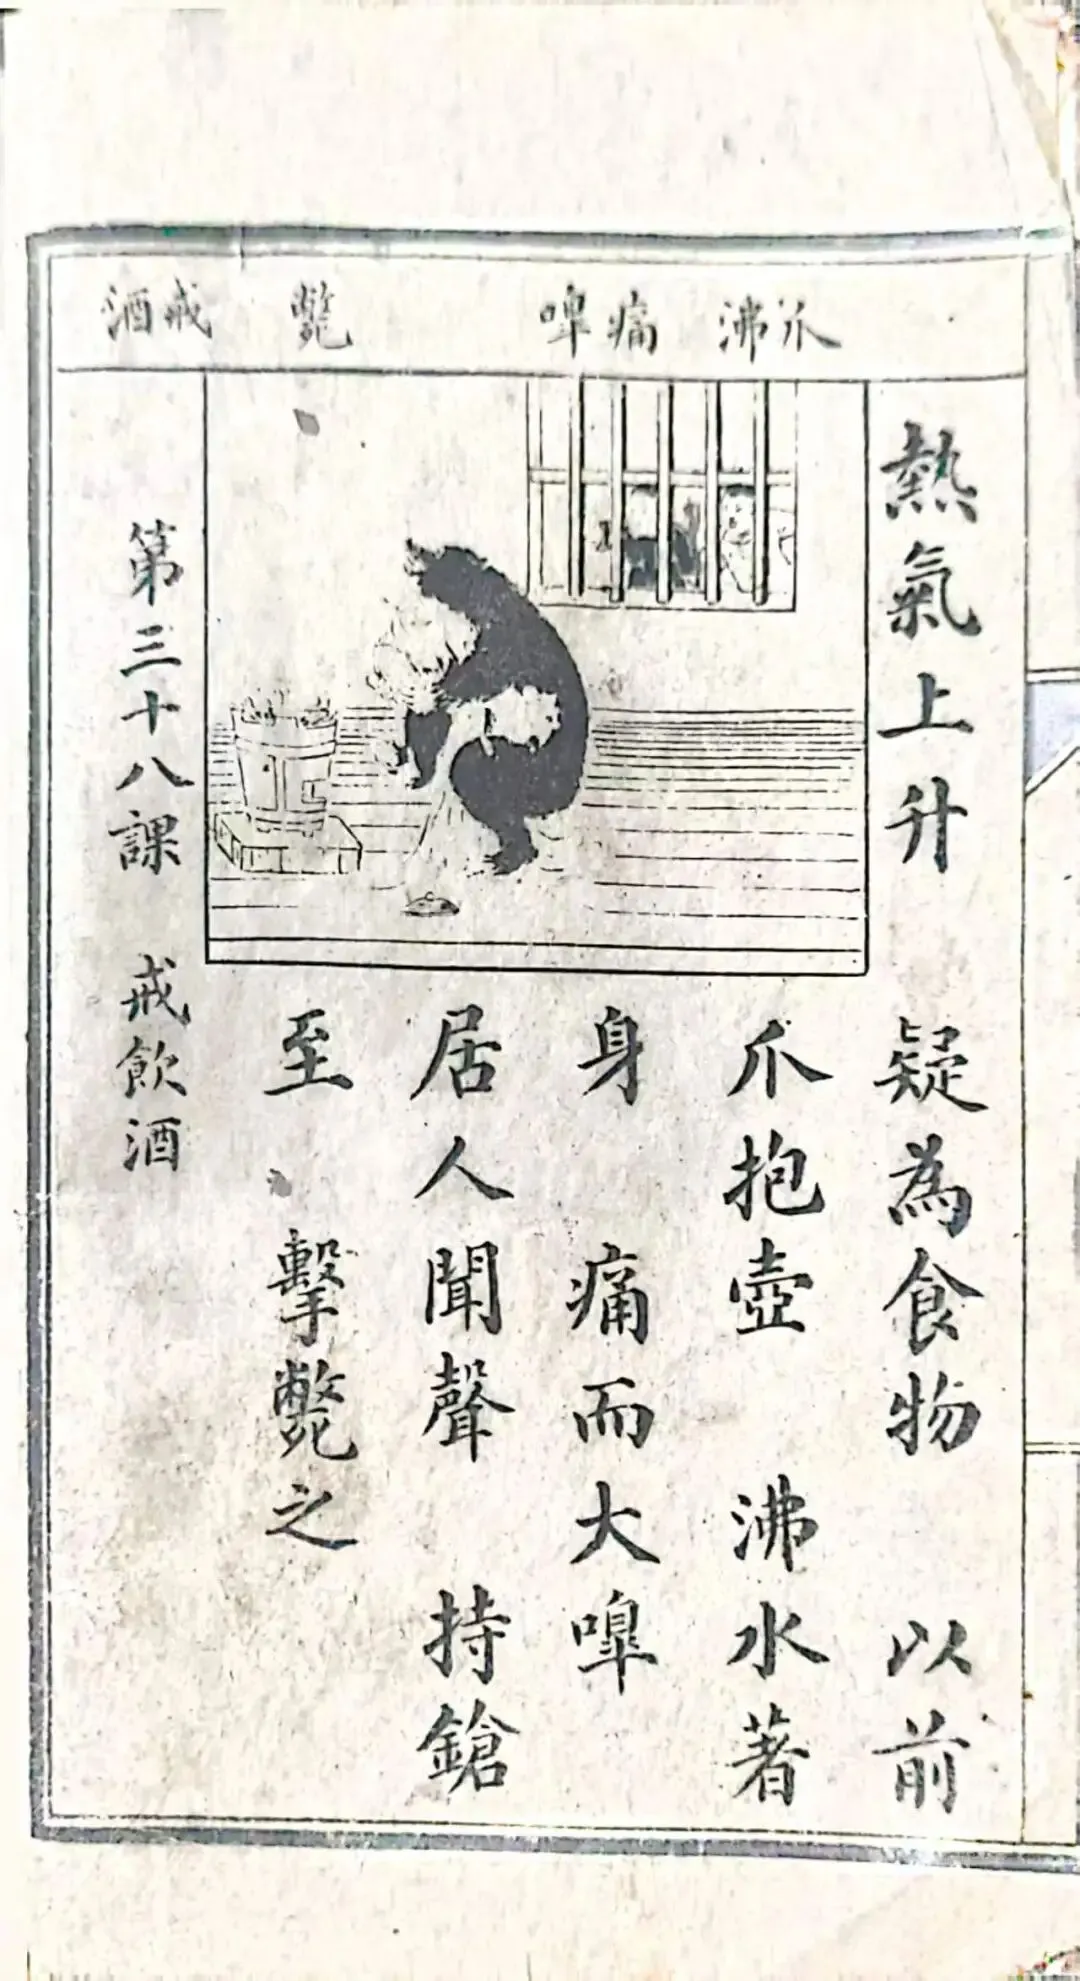 爪沸　痛嘷　斃　戒酒
熱氣上升　疑為食物　以前
爪抱壺　沸水著
身　痛而大嘷
居人聞聲　持鎗
至　擊斃之
第三十八課　戒飲酒